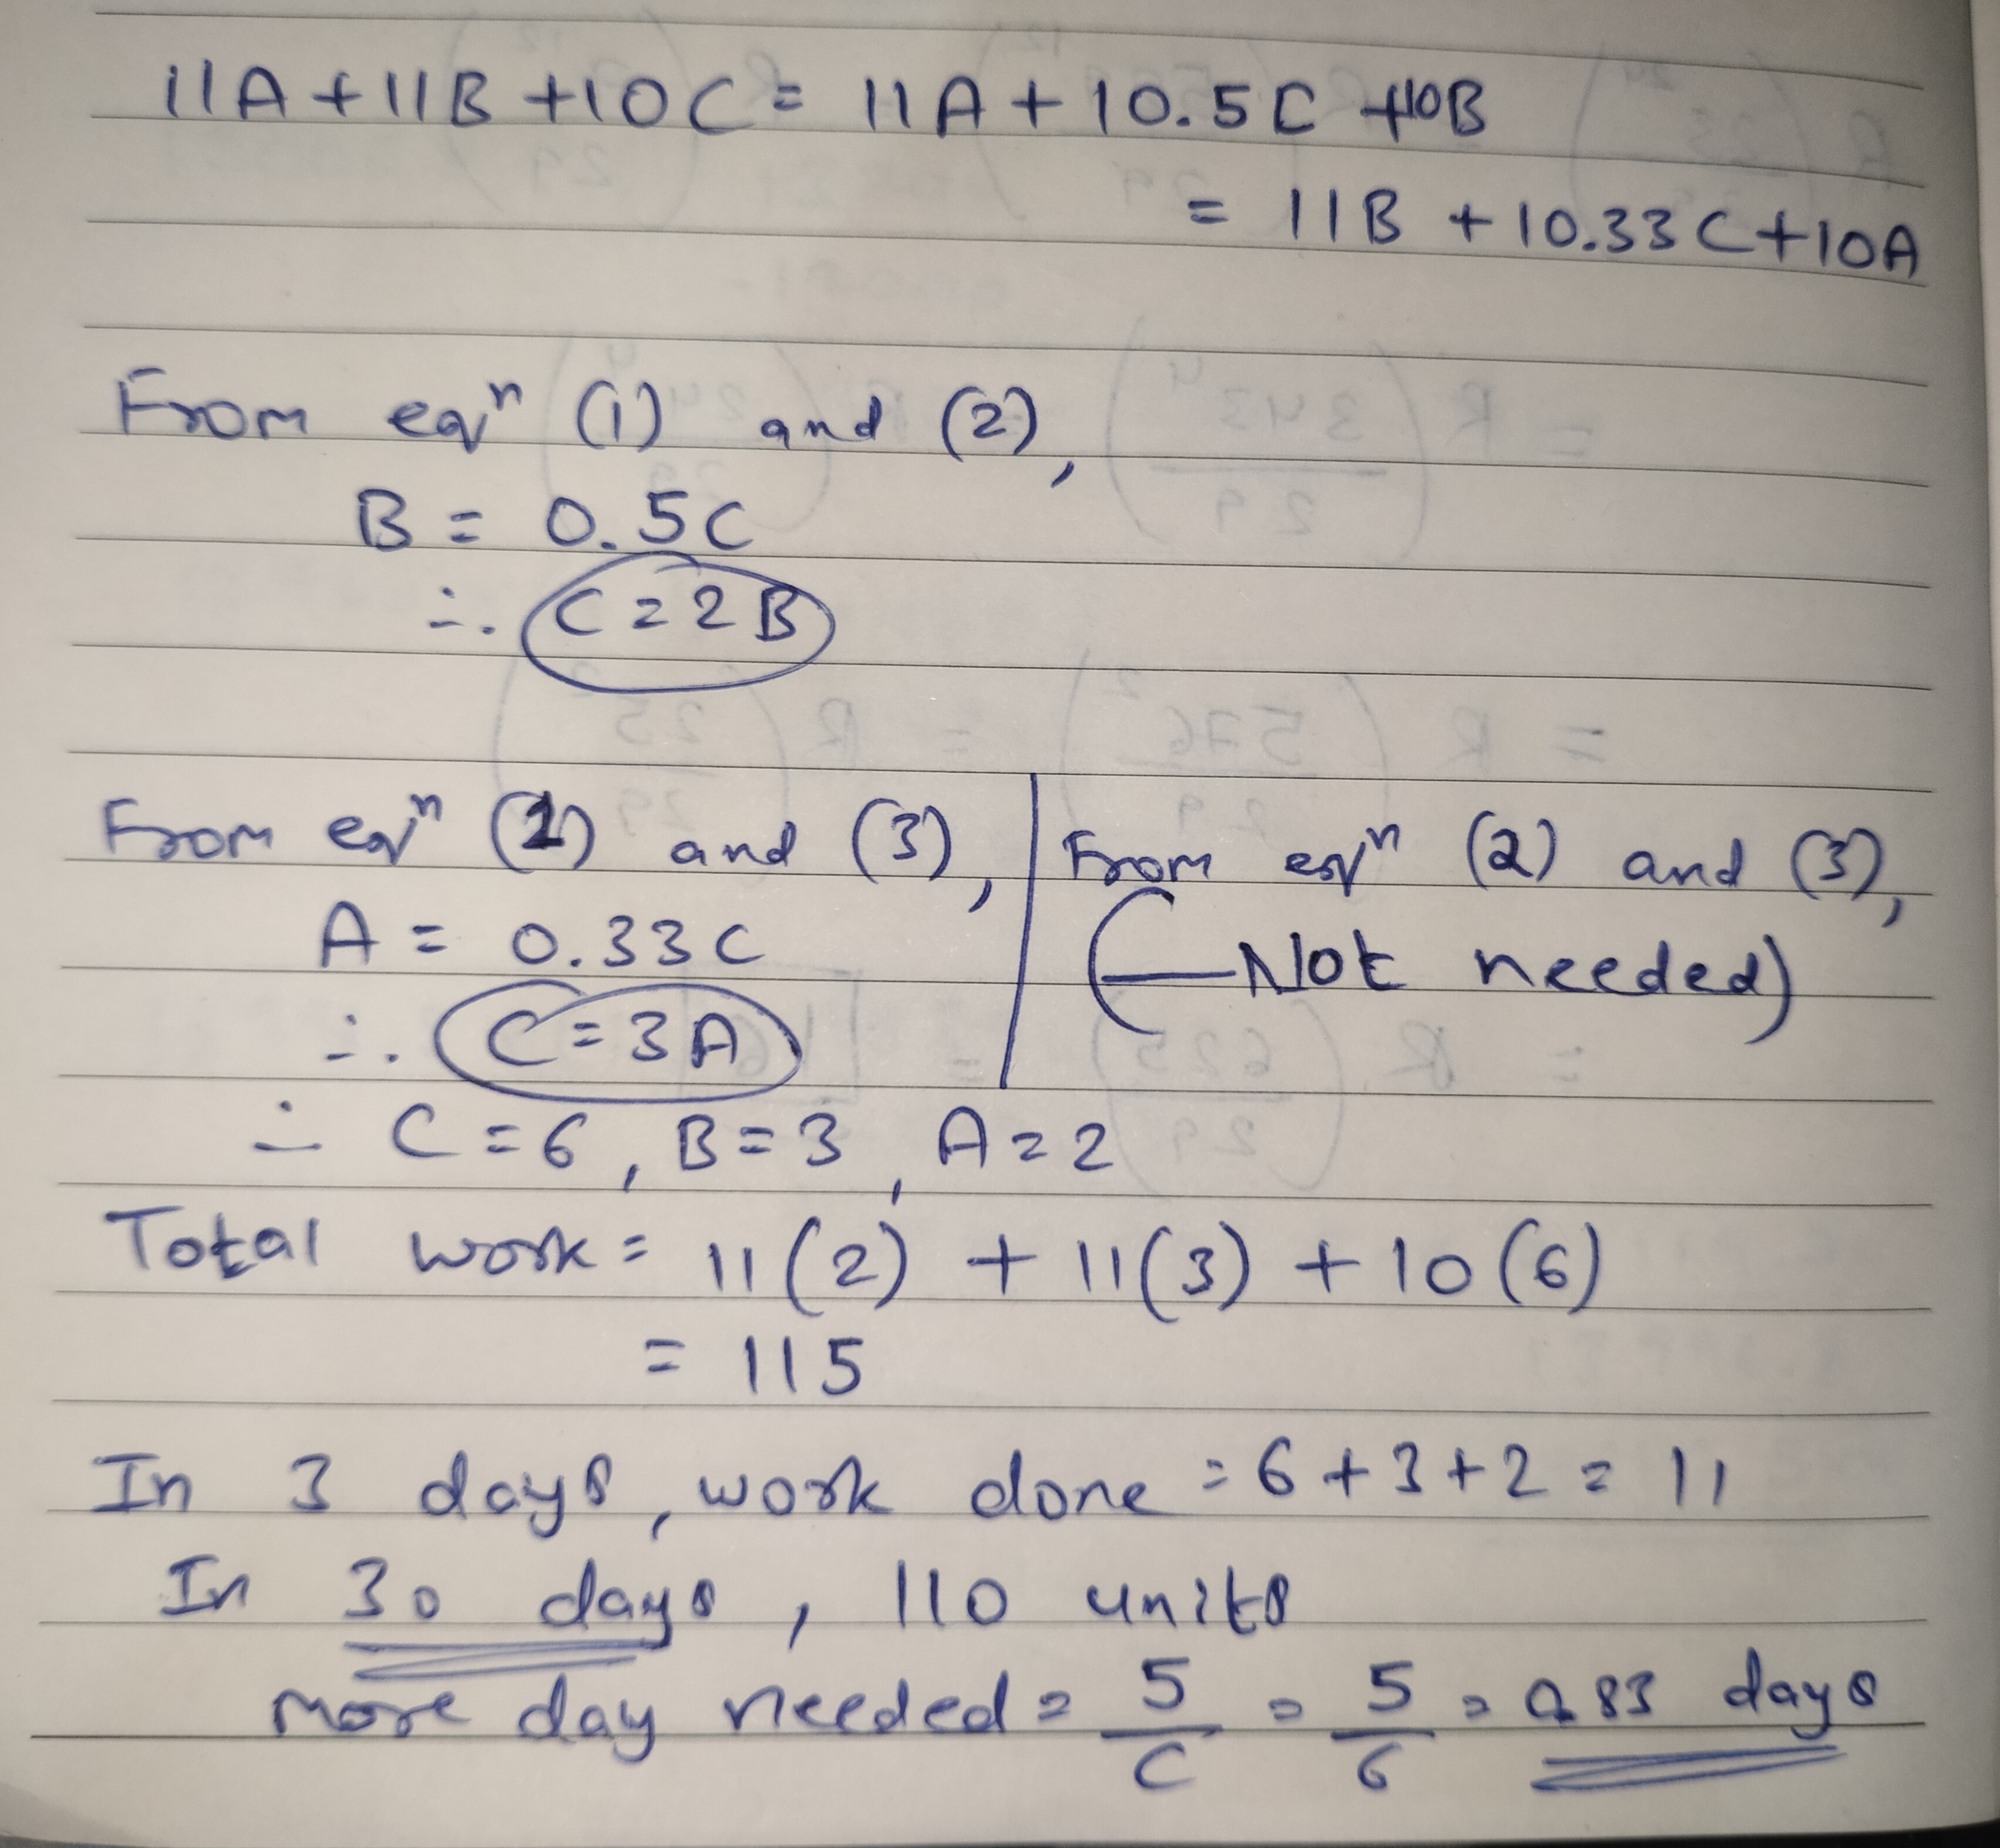 11A + 11B + 10C = 11A + 10.5C + 10B
= 11B + 10.33C + 10A
From eqⁿ (1) and (2),
B = 0.5C
∴ C = 2B
From eqⁿ (1) and (3),
A = 0.33C
∴ C = 3A
From eqⁿ (2) and (3),
(Not needed)
∴ C = 6, B = 3, A = 2
Total work = 11(2) + 11(3) + 10(6)
= 115
In 3 days, work done = 6 + 3 + 2 = 11
In 30 days, 110 units
more day needed = 5/C = 5/6 = 0.83 days